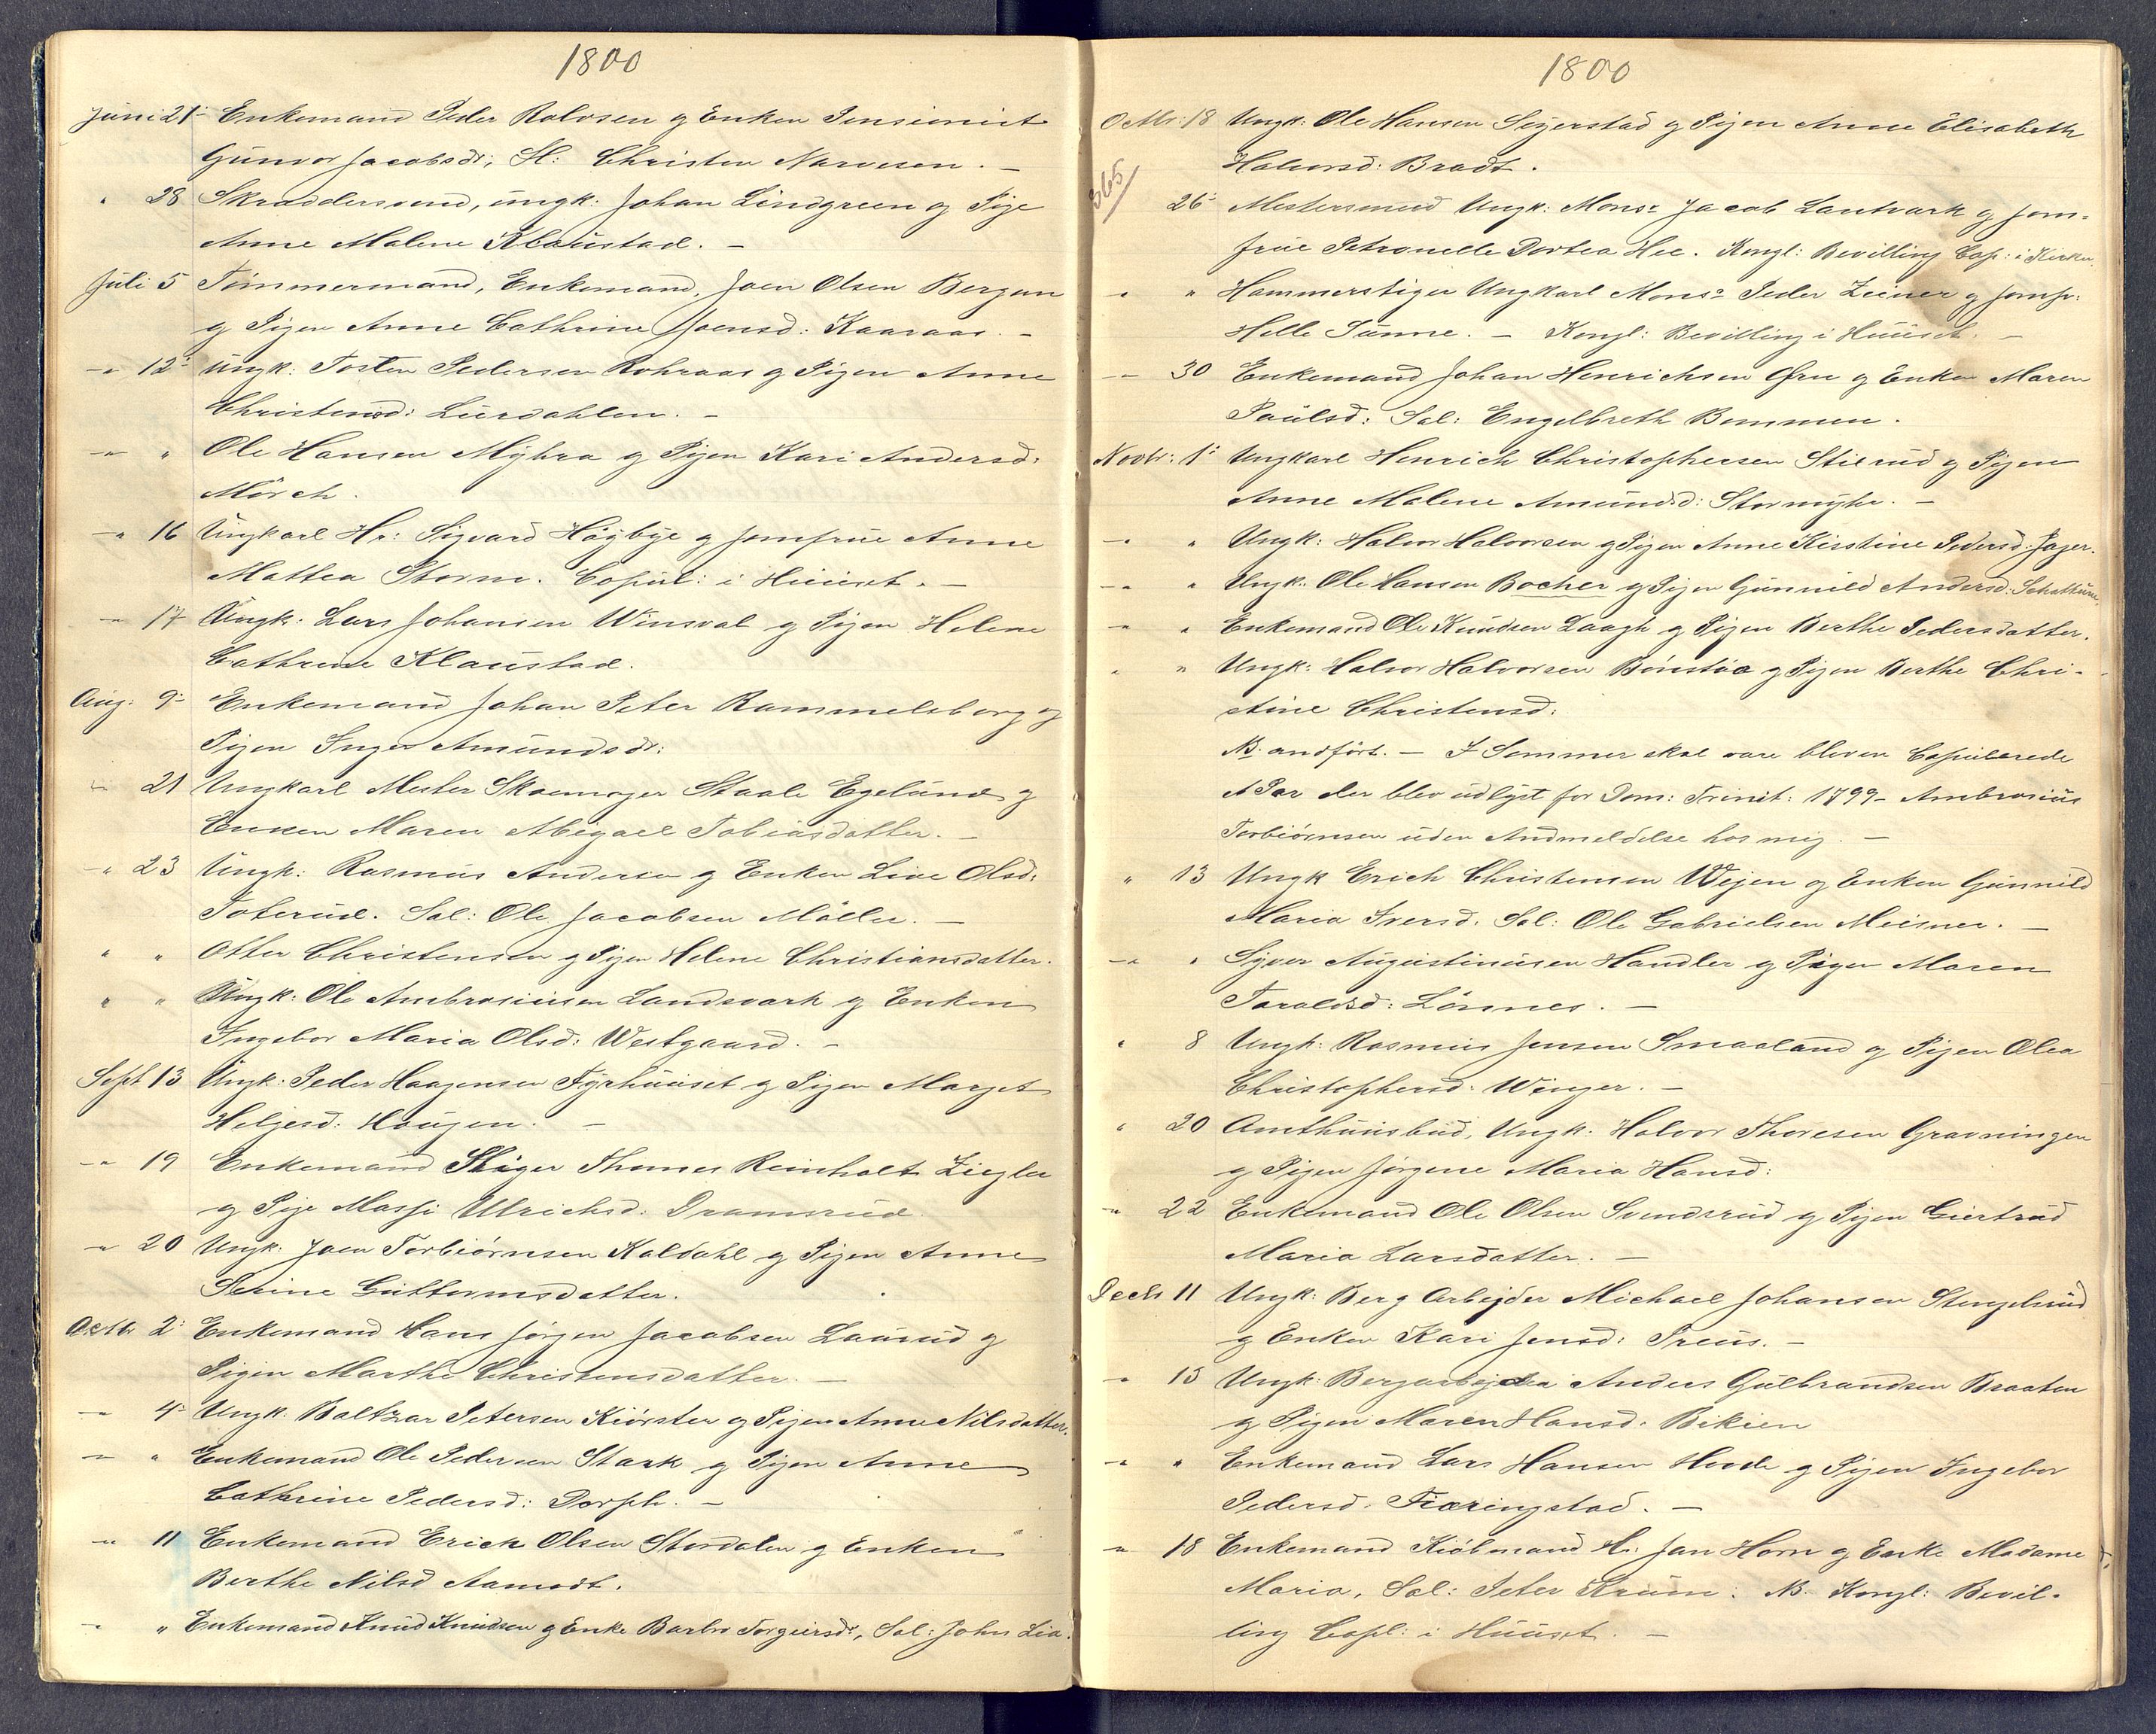 1800
Juni 21 Enkemand Peder Rolvsen og Enken Pensionist
Gunvor Jacobsdr; Sl: Christen Narvesen. —
" 28 Skræddersvend, ungk: Johan Lindgreen og Pige
Anne Malene Klaustad. —
Juli 5 Tømmermand, Enkemand, Joen Olsen Bergan
og Pigen Anne Cathrine Joensd: Kaaraas. —
—" 12 Ungk: Tosten Pedersen Rohraas og Pigen Anne
Christensd: Luurdahlen. —
—" " Ole Hansen Myhra og Pigen Kari Andersd:
Mörch.
—" 16 Ungkarl Hr: Sigvard Høgbye og Jomfrue Anne
Mattea Storm. Copul: i Huuset. —
—" 17 Ungk: Lars Johansen Winsval og Pigen Helene
Cathrine Klaustad.
Aug: 9 Enkemand Johan Peter Rammelsberg og
Pigen Inger Amundsdr:
—" 21 Ungkarl Mester Skoemager Staale Egelund og
Enken Maren Abigael Tobiasdatter. —
—" 23 Ungk: Rasmus Andersen og Enken Live Olsd:
Toterud. Sal: Ole Jacobsen Möller. —
" " Otter Christensen og Pigen Helene Christiansdatter.
" " Ungk: Ole Ambrosiusen Landsvark og Enken
Ingebor Maria Olsd: Westgaard. —
Sept 13 Ungk: Peder Haagensen Fyrhuuset og Pigen Marget
Helgesd: Haugen. —
—" 19 Enkemand Stiger Thomes Reinholt Ziegler
og Pige Massi Ulrichsd: Dramsrud
—" 20 Ungk: Joen Torbiörnsen Kaldahl og Pigen Anne
Serine Guttormsdatter.
Octbr 2 Enkemand Hans Jörgen Jacobsen Laurud og
Pigen Marthe Christensdatter. —
—" 4 Ungk: Baltzar Petersen Kiörsten og Pigen Anne Nilsdatter.
—" " Enkemand Ole Pedersen Stark og Pigen Anne
Cathrine Pedersd: Dorph. —
—" 11 Enkemand Erick Olsen Stordalen og Enken
Berthe Nilsd Aamodt.
—" " Enkemand Knud Knudsen og Enke Barbro Torgiersdr, Sal: John Lia.
1800
Octbr: 18 Ungk: Ole Hansen Segerstad og Pigen Anne Elisabeth
Halvorsd: Bradt.
365
26 Mestersvend Ungk: Monsr Jacob Lantvark og Jom-
frue Petronelle Dortea Hee. Kongl: Bevilling Cop: i Kirken.
—" " Hammerstiger Ungkarl Monsr Peder Zeiner og Jomfr:
Helle Sunne. — Kongl: Bevilling i Huuset. —
—" 30 Enkemand Johan Henrichsen Orn og Enken Maren
Paulsd: Sal: Engelbreth Bommen.
Novbr: 1 Ungkarl Henrich Christophersen Stilrud og Pigen
Anne Malene Amundsd: Stormyhr. —
—" " Ungk: Halvor Halvorsen og Pigen Anne Kirstine Pedersd: Jager.
—" " Ungk: Ole Hansen Bocher og Pigen Gunnild Andersd:
—" " Enkemand Ole Knudsen Laagh og Pigen Berthe Pedersdatter.
" " Ungk: Halvor Halvorsen Bönstöa og Pigen Berthe Chri-
stine Christensd:
NB. andfört. — I Sommer skal være bleven Copulerede
et Par der blev udlyst for Dom: Trinit: 1799 — Ambrosius
Torbiörnsen uden Andmeldelse hos mig. —
" 13 Ungk Erich Christensen Wejen og Enken Gunnild
Maria Iversd: Sal: Ole Gabrielsen Meisner. —
—" " Syver Augustinusen Handler og Pigen Maren
Taraldsd: Lönnes. —
" 8 Ungk: Rasmus Jensen Smaaland og Pigen Olea
Christophersd: Winger. —
" 20 Amthuusbud, Ungk: Halvor Thoresen Gravningen
og Pigen Jörgene Maria Hansd:
—" 22 Enkemand Ole Olsen Svendsrud og Pigen Giertrud
Maria Larsdatter. —
Decbr 11 Ungk: Berg Arbejder Michael Johansen Stengelsrud
og Enken Kari Jensd: Preus. —
—" 15 Ungk: Bergarbejder Anders Gulbrandsen Braaten
og Pigen Maren Hansd: Bikien
—" " Enkemand Lars Hansen Hvode og Pigen Ingebor
Pedersd: Fiæringstad. —
—" 18 Enkemand Kiöbmand Hr. Jan Horn og Enke Madame
Maria, Sal: Peter Krum. NB. Kongl: Bevil-
ling Copl: i Huuset. —